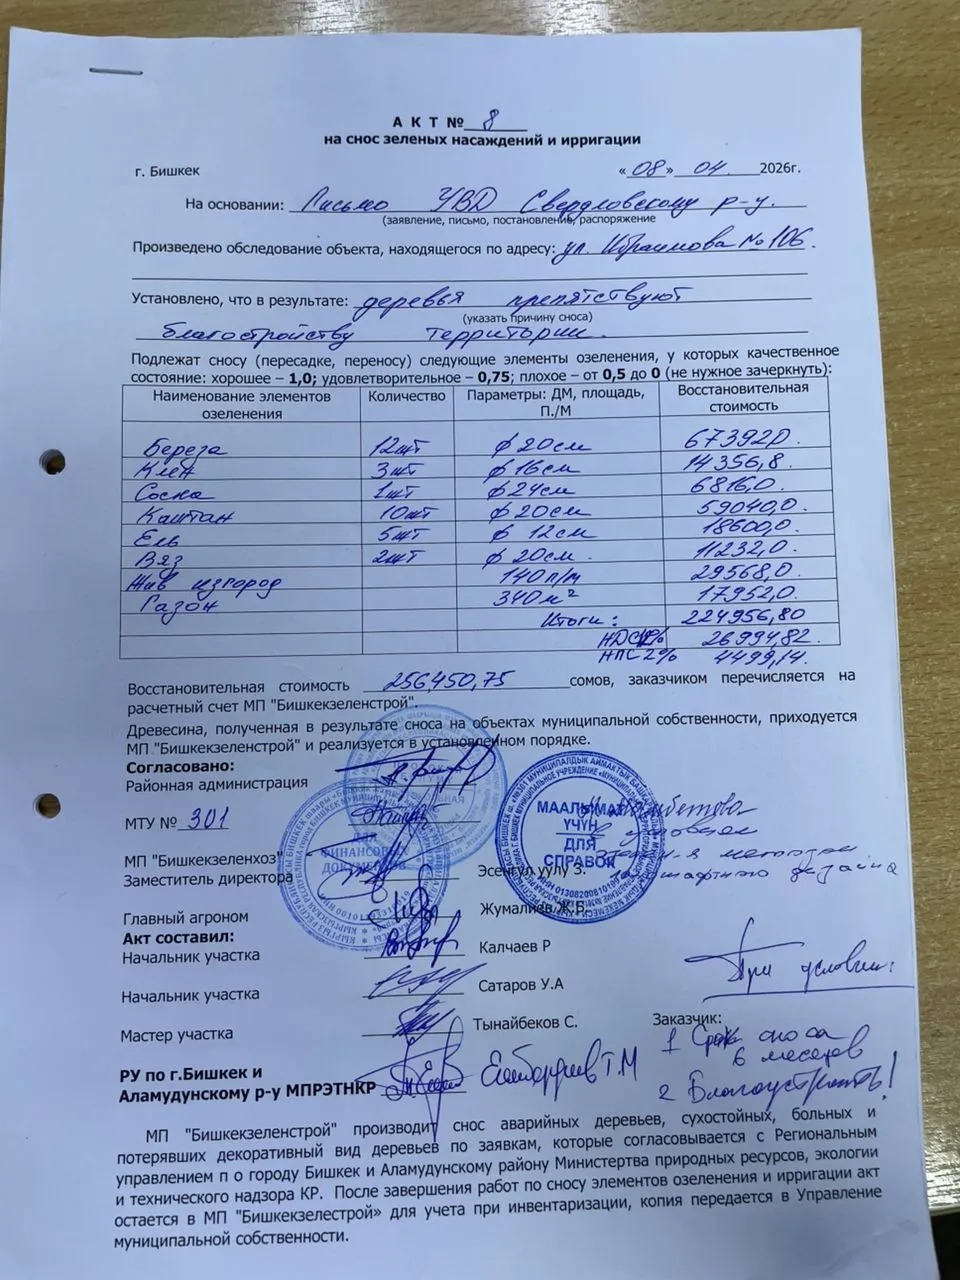 А К Т №_8_
на снос зеленых насаждений и ирригации
г. Бишкек «08» 04. 2026г.
На основании: Письмо УВД Свердловскому р-у.
(заявление, письмо, постановление, распоряжение
Произведено обследование объекта, находящегося по адресу: ул. Ибраимова № 106.
Установлено, что в результате: деревья препятствуют
(указать причину сноса)
благостройству территории.
Подлежат сносу (пересадке, переносу) следующие элементы озеленения, у которых качественное
состояние: хорошее – 1,0; удовлетворительное – 0,75; плохое – от 0,5 до 0 (не нужное зачеркнуть):
Наименование элементов озеленения Количество Параметры: ДМ, площадь, П./М Восстановительная стоимость
Береза 12шт ф 20см 67392,0.
Клен 3шт ф 16см 14356,8.
Сосна 1шт ф 24см 6816,0.
Каштан 10шт ф 20см 59040,0.
Ель 5шт ф 12см 18600,0.
Вяз 2шт ф 20см. 11232,0.
Жив изгород 140п/м 29568,0.
Газон 340м² 17952,0.
Итого: 224956,80
НДС 12% 26994,82.
НПС 2% 4499,14.
Восстановительная стоимость 256450,75 сомов, заказчиком перечисляется на
расчетный счет МП "Бишкекзеленстрой".
Древесина, полученная в результате сноса на объектах муниципальной собственности, приходуется
МП "Бишкекзеленстрой" и реализуется в установленном порядке.
Согласовано:
Районная администрация
МТУ № 301
МААЛЫМАТ ҮЧҮН
ДЛЯ СПРАВОК
ФИНАНСОВЫХ ДОКУМЕНТОВ
МП "Бишкекзеленхоз"
Заместитель директора Эсенгул уулу З.
Главный агроном Жумалиев Ж.Б.
Акт составил:
Начальник участка Калчаев Р
При условии:
Начальник участка Сатаров У.А
Мастер участка Тынайбеков С. Заказчик:
1 Срок сноса
6 месяцев
2 Благоустроить!
РУ по г.Бишкек и
Аламудунскому р-у МПРЭТНКР
МП "Бишкекзеленстрой" производит снос аварийных деревьев, сухостойных, больных и
потерявших декоративный вид деревьев по заявкам, которые согласовывается с Региональным
управлением п о городу Бишкек и Аламудунскому району Министертва природных ресурсов, экологии
и технического надзора КР. После завершения работ по сносу элементов озеленения и ирригации акт
остается в МП "Бишкекзелестрой» для учета при инвентаризации, копия передается в Управление
муниципальной собственности.